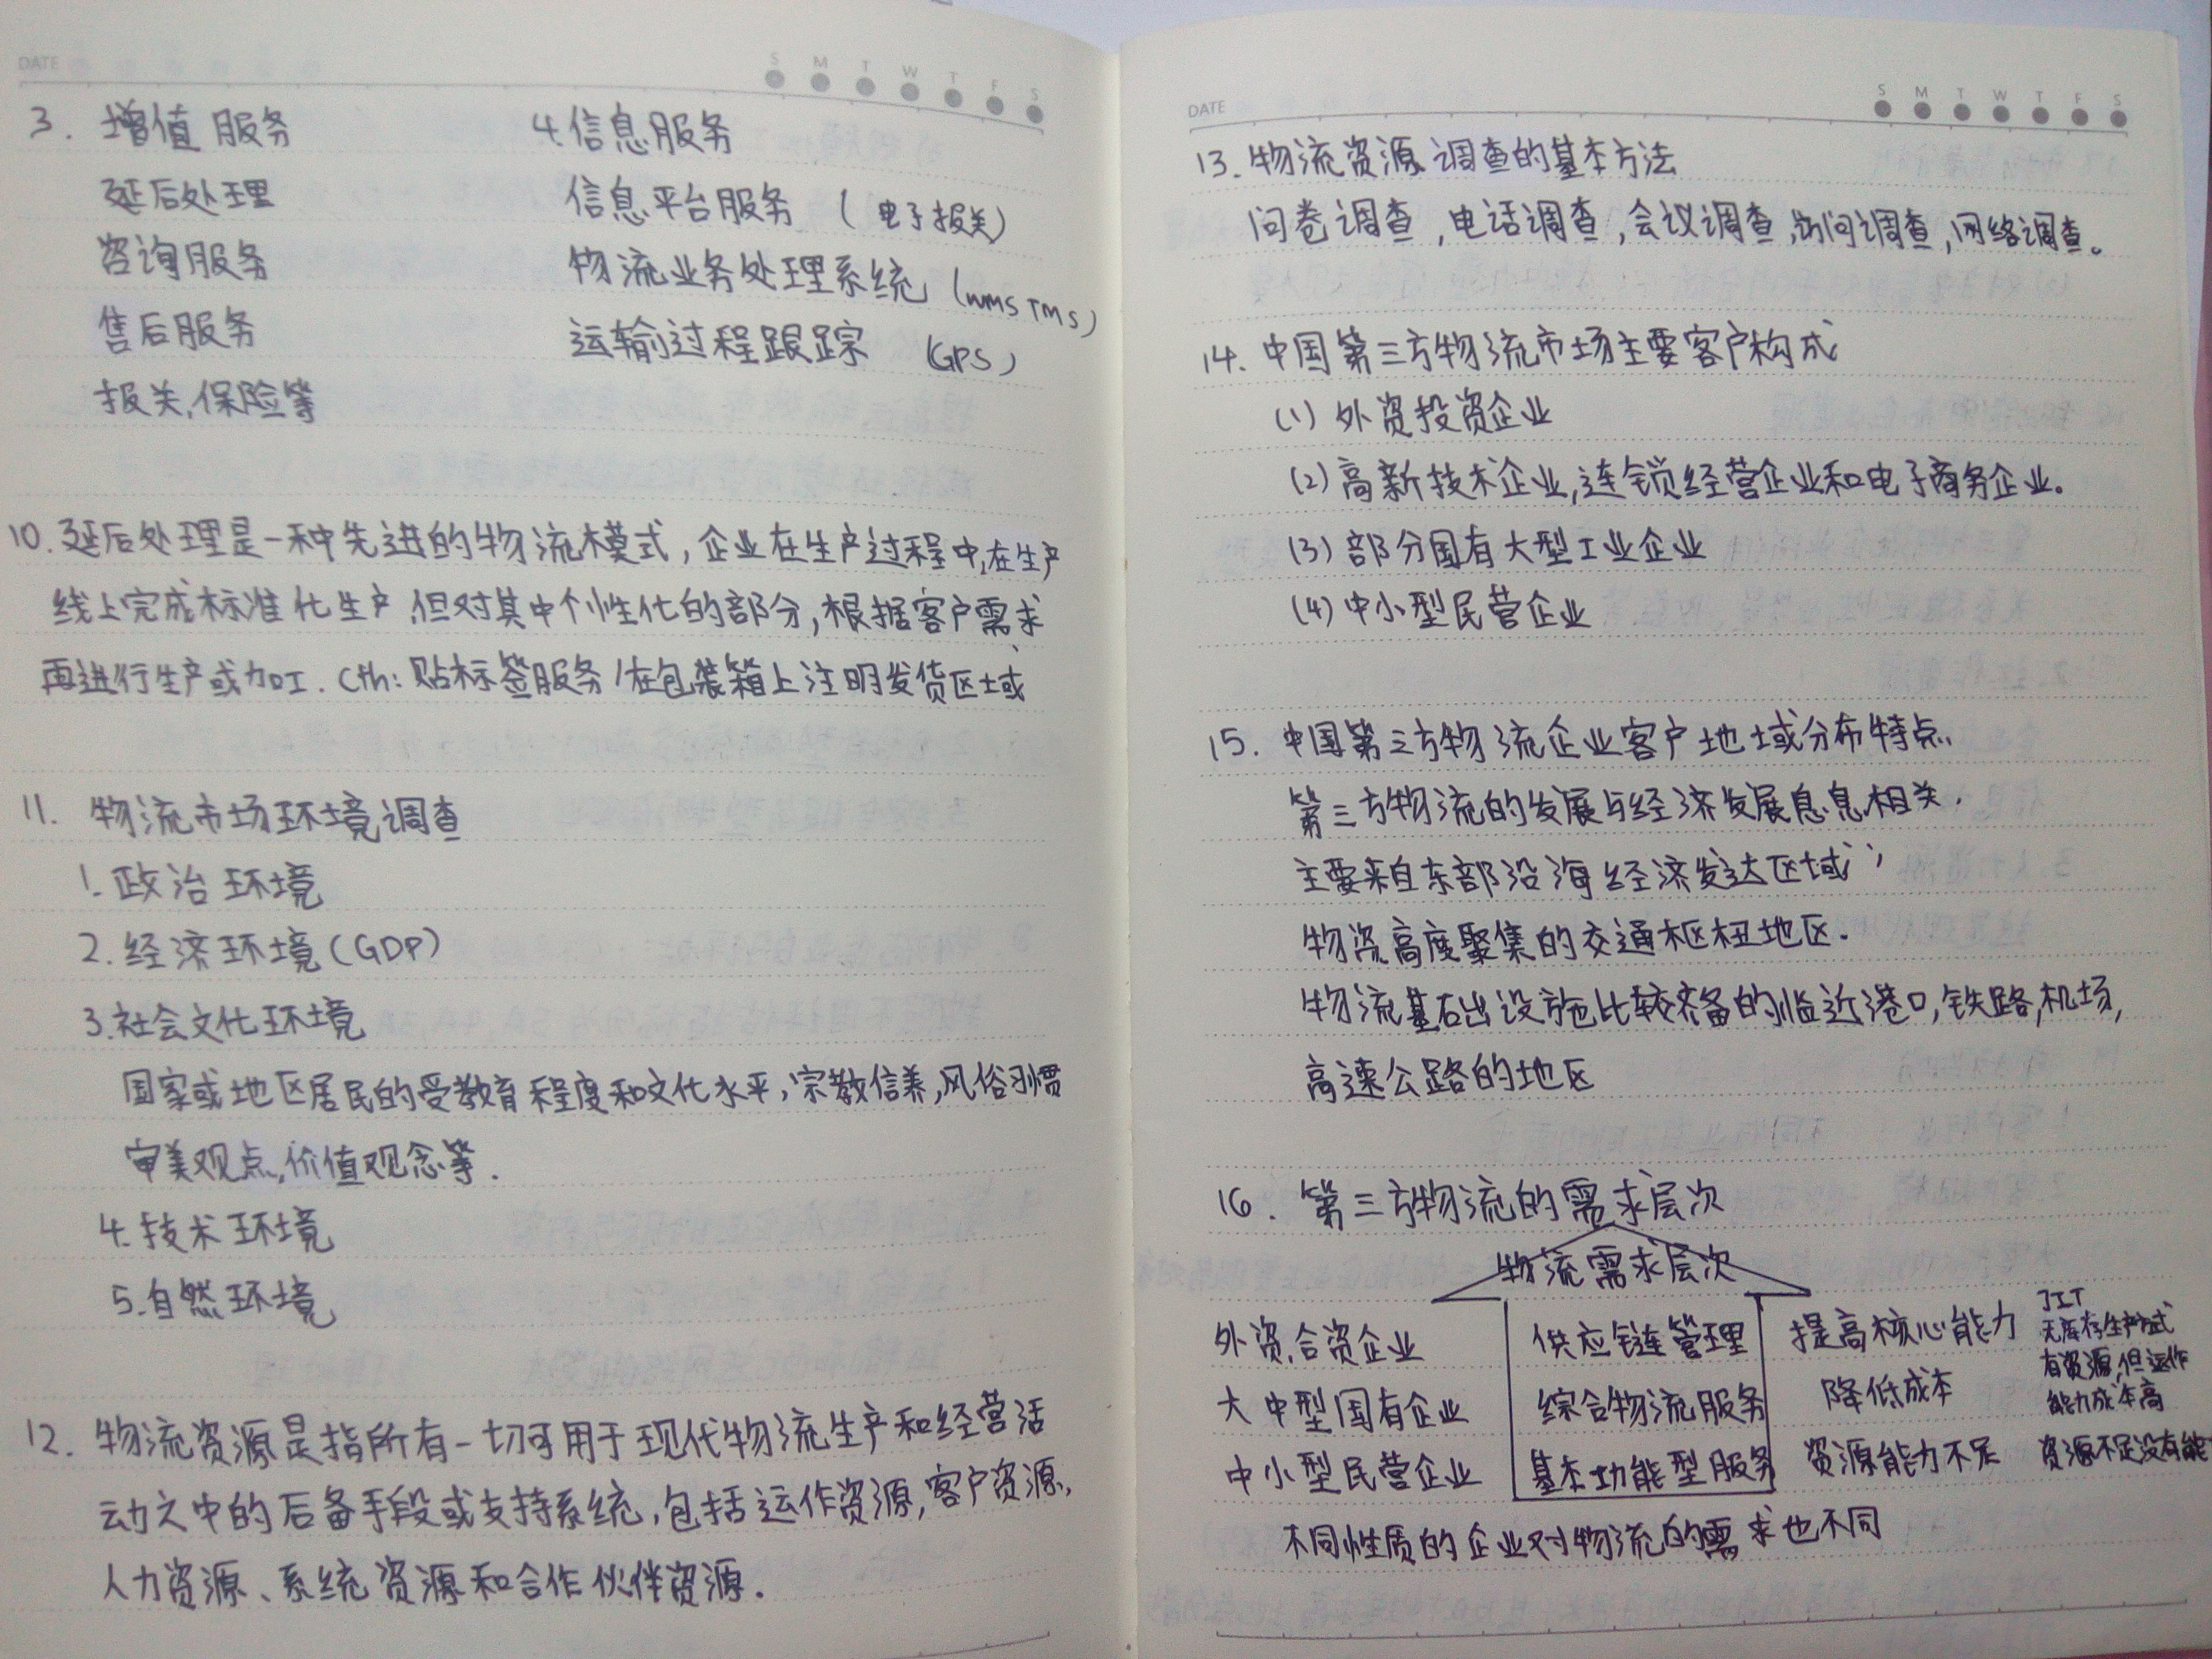 DATE
S M T W T F S
3. 增值服务
延后处理
咨询服务
售后服务
报关,保险等
4.信息服务
信息平台服务 (电子报关)
物流业务处理系统 (WMS TMS)
运输过程跟踪 (GPS)
10.延后处理是一种先进的物流模式,企业在生产过程中,在生产
线上完成标准化生产,但对其中个性化的部分,根据客户需求
再进行生产或加工.(如:贴标签服务/在包装箱上注明发货区域
11. 物流市场环境调查
1.政治环境
2.经济环境(GDP)
3.社会文化环境
国家或地区居民的受教育程度和文化水平,宗教信养,风俗习惯
审美观点,价值观念等.
4.技术环境
5.自然环境
12. 物流资源是指所有一切可用于现代物流生产和经营活
动之中的后备手段或支持系统,包括运作资源,客户资源,
人力资源、系统资源和合作伙伴资源.
DATE
S M T W T F S
13.物流资源调查的基本方法
问卷调查,电话调查,会议调查,访问调查,网络调查。
14.中国第三方物流市场主要客户构成
(1)外资投资企业
(2)高新技术企业,连锁经营企业和电子商务企业。
(3)部分国有大型工业企业
(4)中小型民营企业
15.中国第三方物流企业客户地域分布特点
第三方物流的发展与经济发展息息相关.
主要来自东部沿海经济发达区域;
物资高度聚集的交通枢杻地区.
物流基础设施比较齐备的临近港口,铁路,机场,
高速公路的地区
16. 第三方物流的需求层次
物流需求层次
外资,合资企业 供应链管理 提高核心能力 JIT
无库存生产方式
大中型国有企业 综合物流服务 降低成本 有资源,但运作
能力成本高
中小型民营企业 基本功能型服务 资源能力不足 资源不足没有能
不同性质的企业对物流的需求也不同